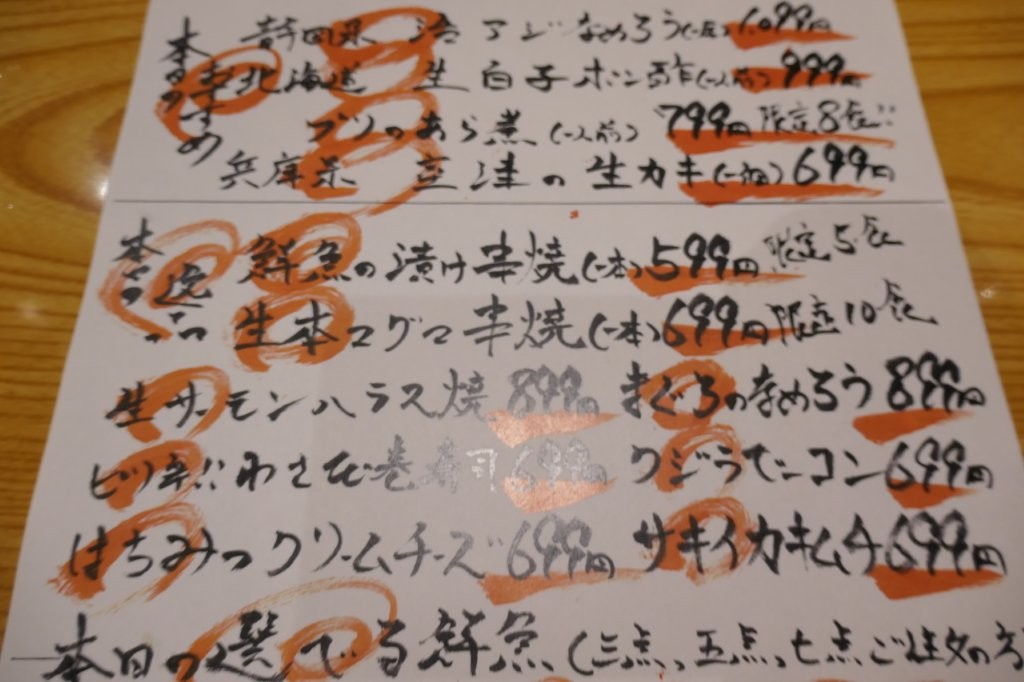 本日のおすすめ
静岡県 活アジなめろう(一匹)1,099円
北海道 生白子ポン酢(一人前)999円
ブリのあら煮(一人前)799円 限定8食!!
兵庫県 室津の生カキ(一個)699円
本日の逸品
鮮魚の漬け串焼(一本)599円 限定5食
生本マグロ串焼(一本)699円 限定10食
生サーモンハラス焼899円 まぐろのなめろう899円
ピリ辛!!わさび巻寿司699円 クジラベーコン699円
はちみつクリームチーズ699円 サキイカキムチ699円
本日の選べる鮮魚(三点、五点、七点ご注文の方